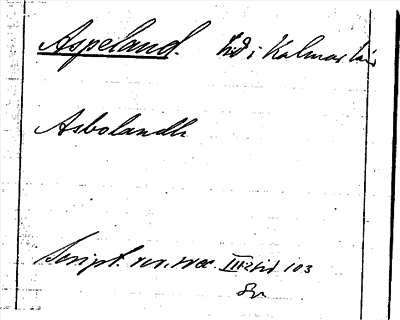 Aspeland. hd i Kalmar län
Asbolandh
Script. rer. svec. III:2 sid. 103